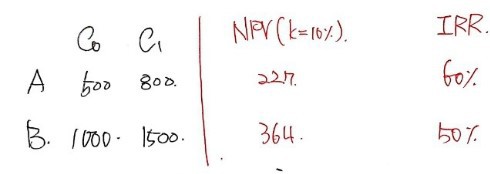 C₀ C₁ NPV (k=10%). IRR.
A 500 800. 227. 60%
B. 1000. 1500. 364. 50%